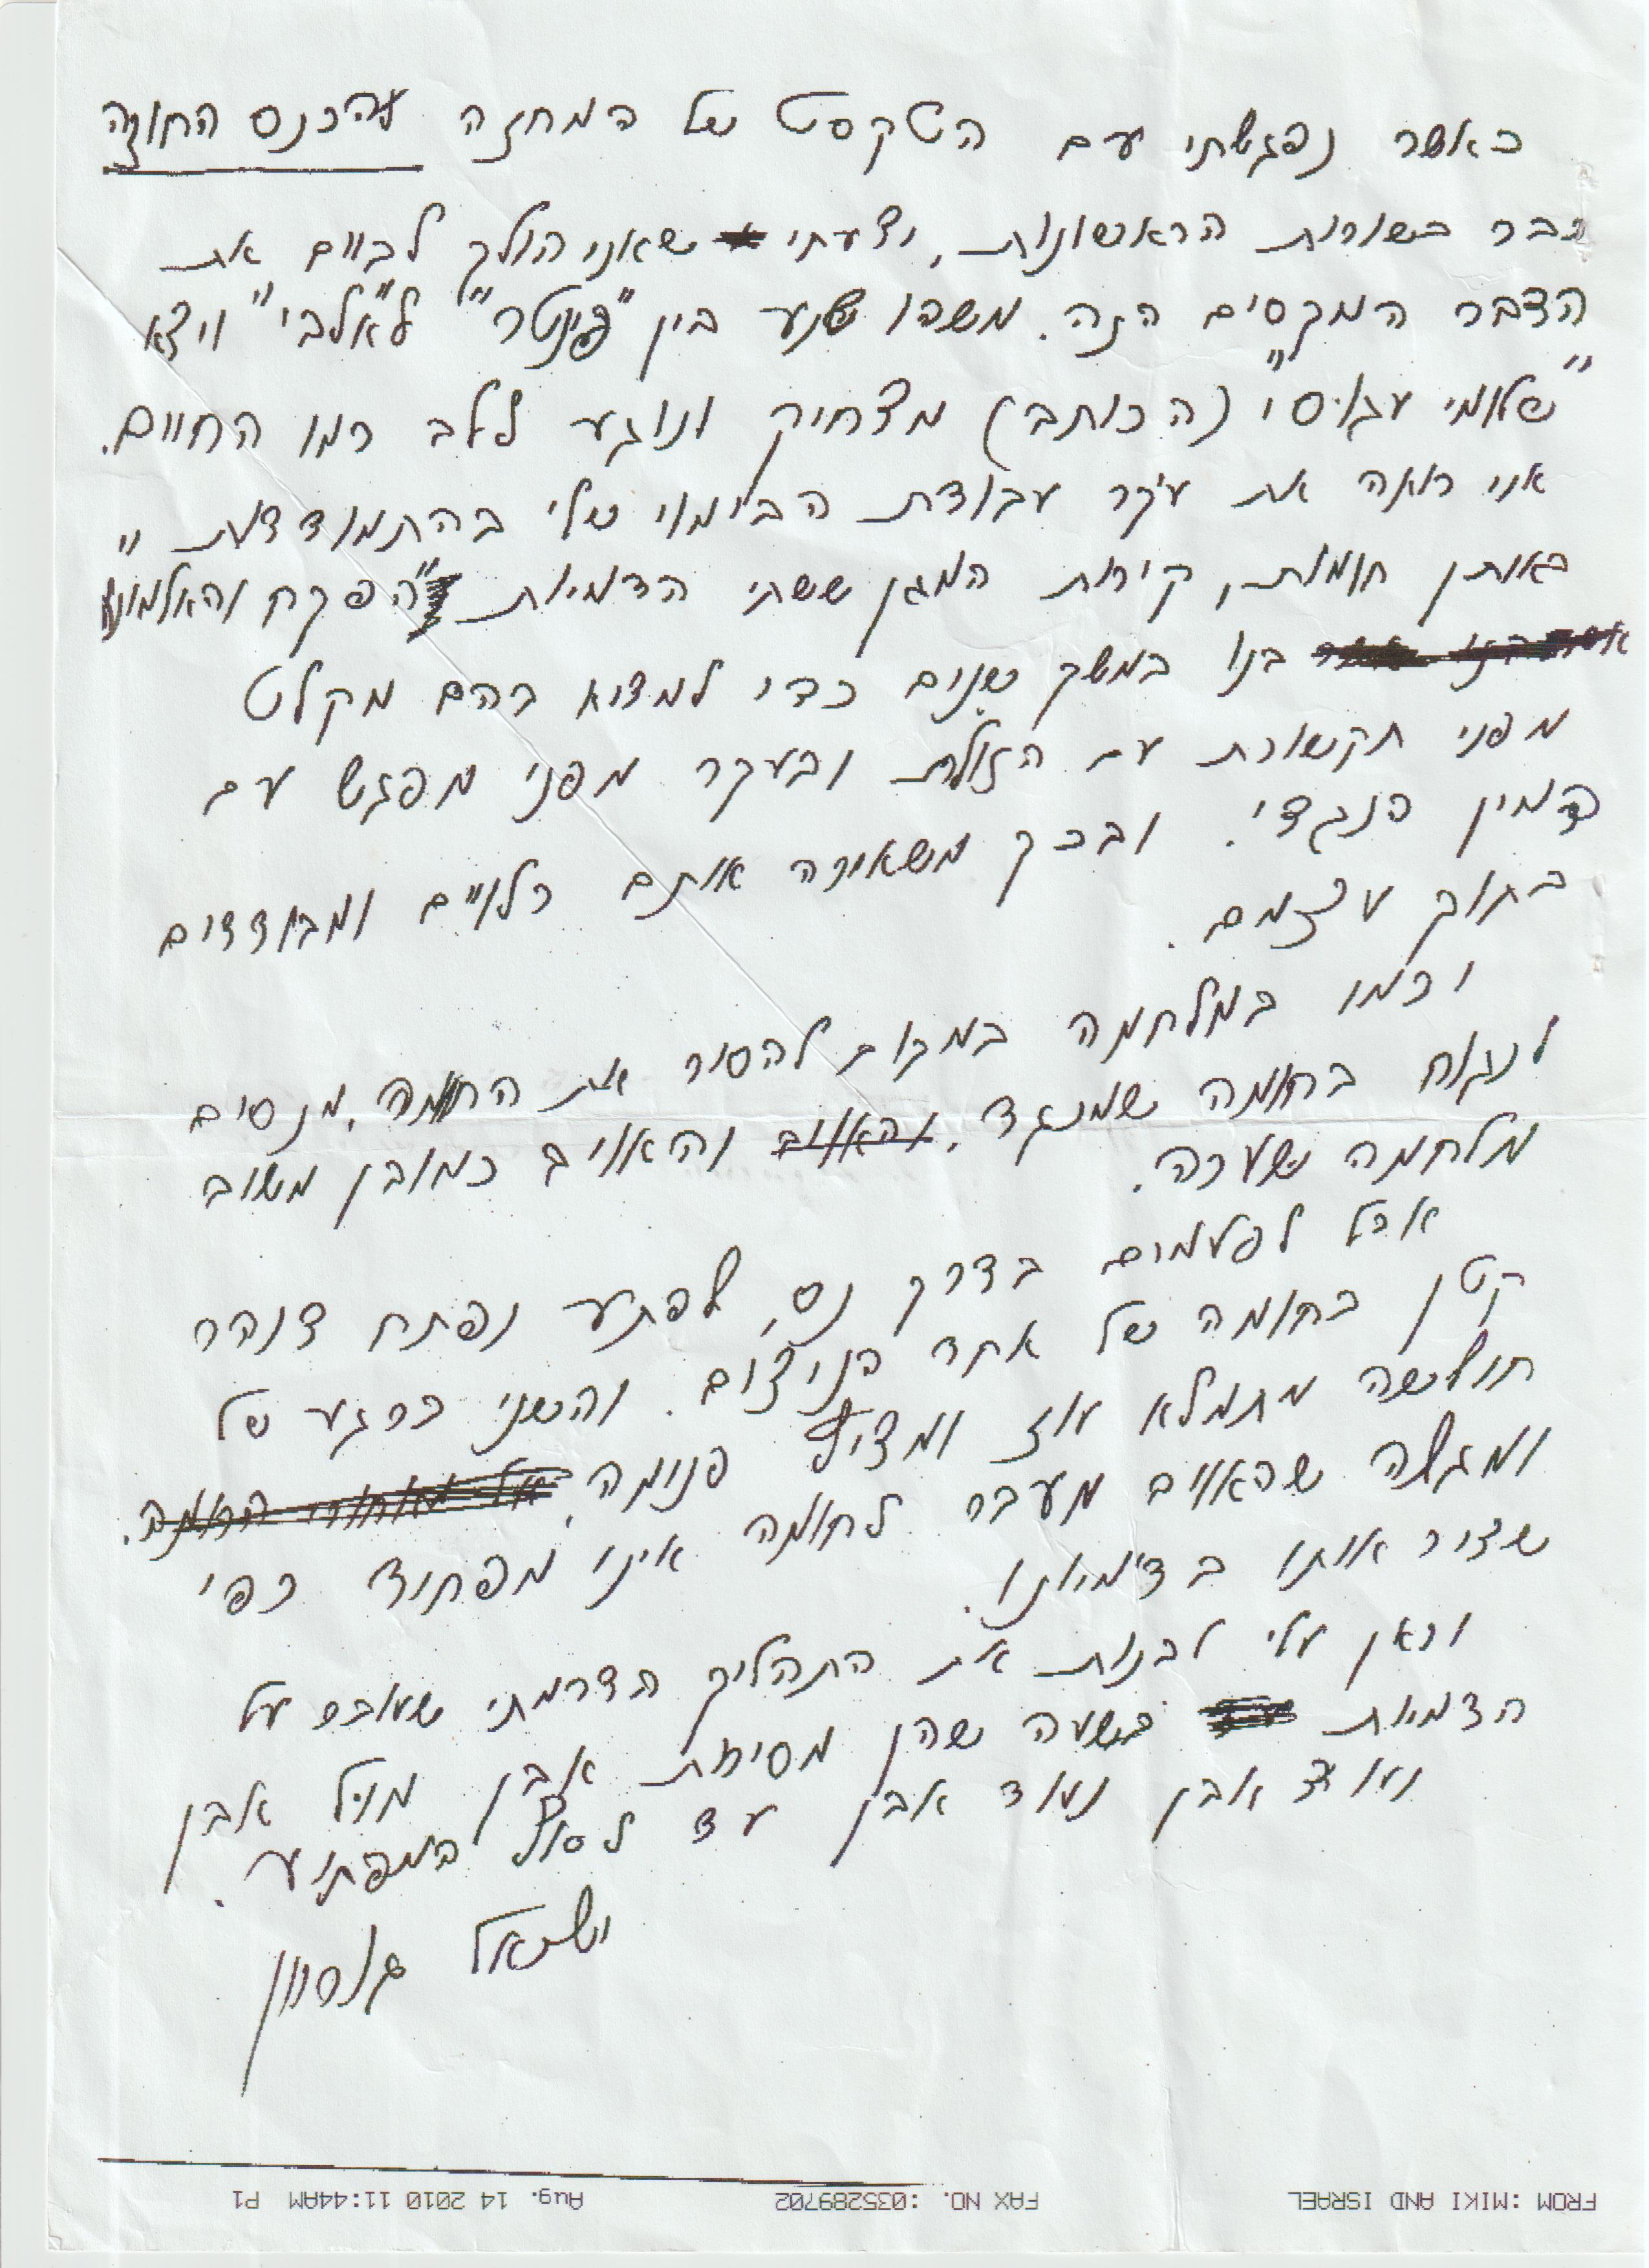 כאשר נפגשתי עם הטקסט של המחזה להכנס החוצה
כבר בשורות הראשונות, ידעתי שאני הולך לביים את
הדבר המקסים הזה. משהו שנע בין "פינטר" ל"אלבי" ויצא
"שלומי (הכותב) מצחיק ונוגע ללב כמו החיים.
אני רואה את עקר עבודת הבימוי שלי בהתמודדות
באותן חומות, קירות המגן ששתי הדמויות "הפקח והאלמונית
בנו במשך שנים כדי למצוא בהם מקלט
מפני תקשורת עם הזולת ובעקר מפני מפגש עם
המין הנגדי. ובכך משאירה אותם כלויים ומבודדים
בתוך עצמם.
וכמו במלחמה במקום להסיר את החומה, מנסים
לנגוח בחומה שמנגד, והאויב כמובן משיב
מלחמה שערה.
אבל לפעמים בדרך נס, לפתע נפתח צוהר
קטן בחומה של אחד הניצים. והשני ברגע של
חולשה מתמלא עוז ומציץ פנימה,
ומגלה שהאויב מעבר לחומה אינו מפחיד כפי
שצייר אותו בדימיונו.
וכאן עלי לבנות את התהליך הדרמתי שעובר על
הדמויות בשעה שהן מסירות אבן מול אבן
ועוד אבן ועוד אבן עד לסוף המפתיע.
ישראל
FROM :MIKI AND ISRAEL FAX NO. :035289702 Aug. 14 2010 11:44AM P1